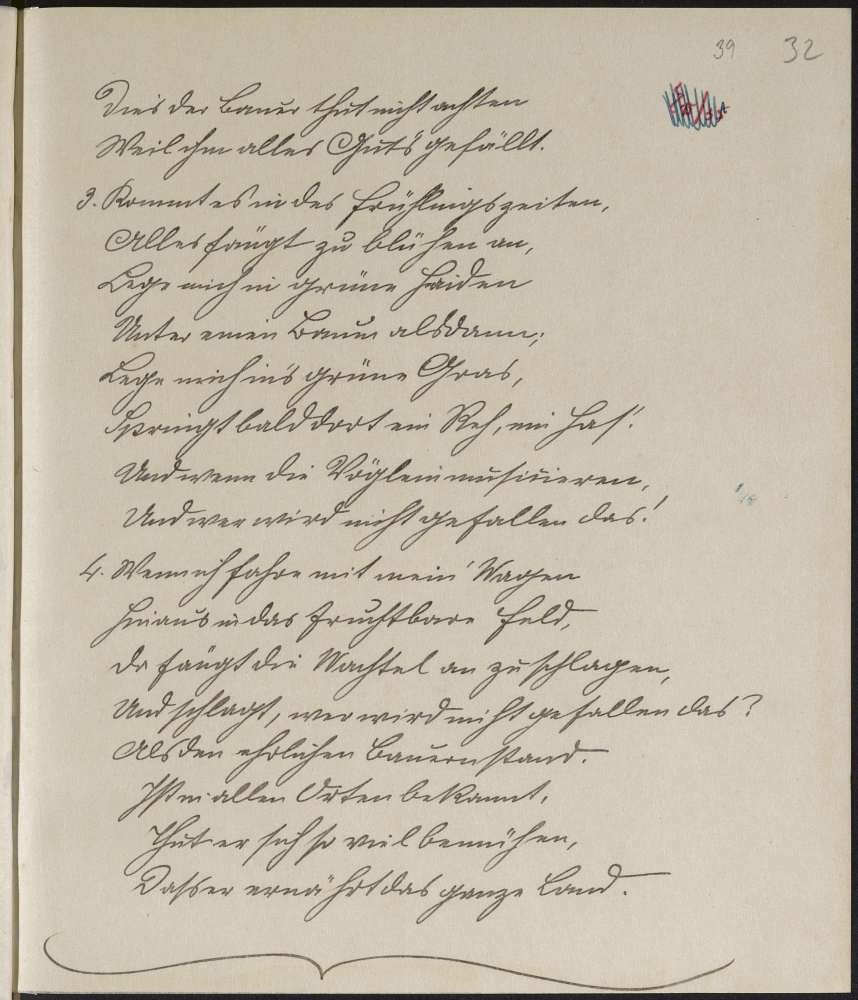 39 32
Dies der Bauer thut nicht achten
Weil ihm alles Guts gefällt.
3. Kommt es in des Frühlingszeiten,
Alles fängt zu blühen an,
Lege mich in grüne Haiden
Unter einen Baum alsdann;
Lege mich in's grüne Gras,
Springt bald dort ein Reh, ein Has'.
Und wenn die Vöglein musicieren,
Und wer wird nicht gefallen das!
4. Wenn ich fahre mit mein' Wagen
Hinaus in das fruchtbare Feld,
Da fängt die Wachtel an zu schlagen,
Und schlagt, wer wird nicht gefallen das?
Als den ehrlichen Bauernstand.
Ist in allen Orten bekannt,
Thut er sich so viel bemühen,
Dass er ernährt das ganze Land.